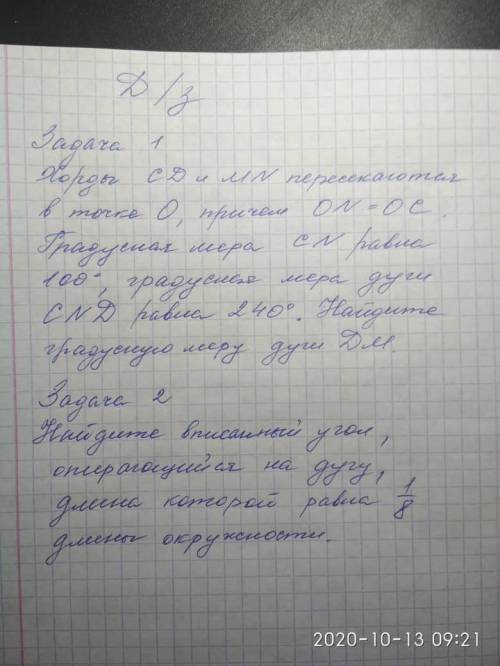 Д/з
Задача 1
Хорды CD и MN пересекаются
в точке O, причем ON=OC.
Градусная мера CN равна
100°, градусная мера дуги
CND равна 240°. Найдите
градусную меру дуги DM.
Задача 2
Найдите вписанный угол,
опирающийся на дугу,
длина которой равна 1/8
длины окружности.
2020-10-13 09:21